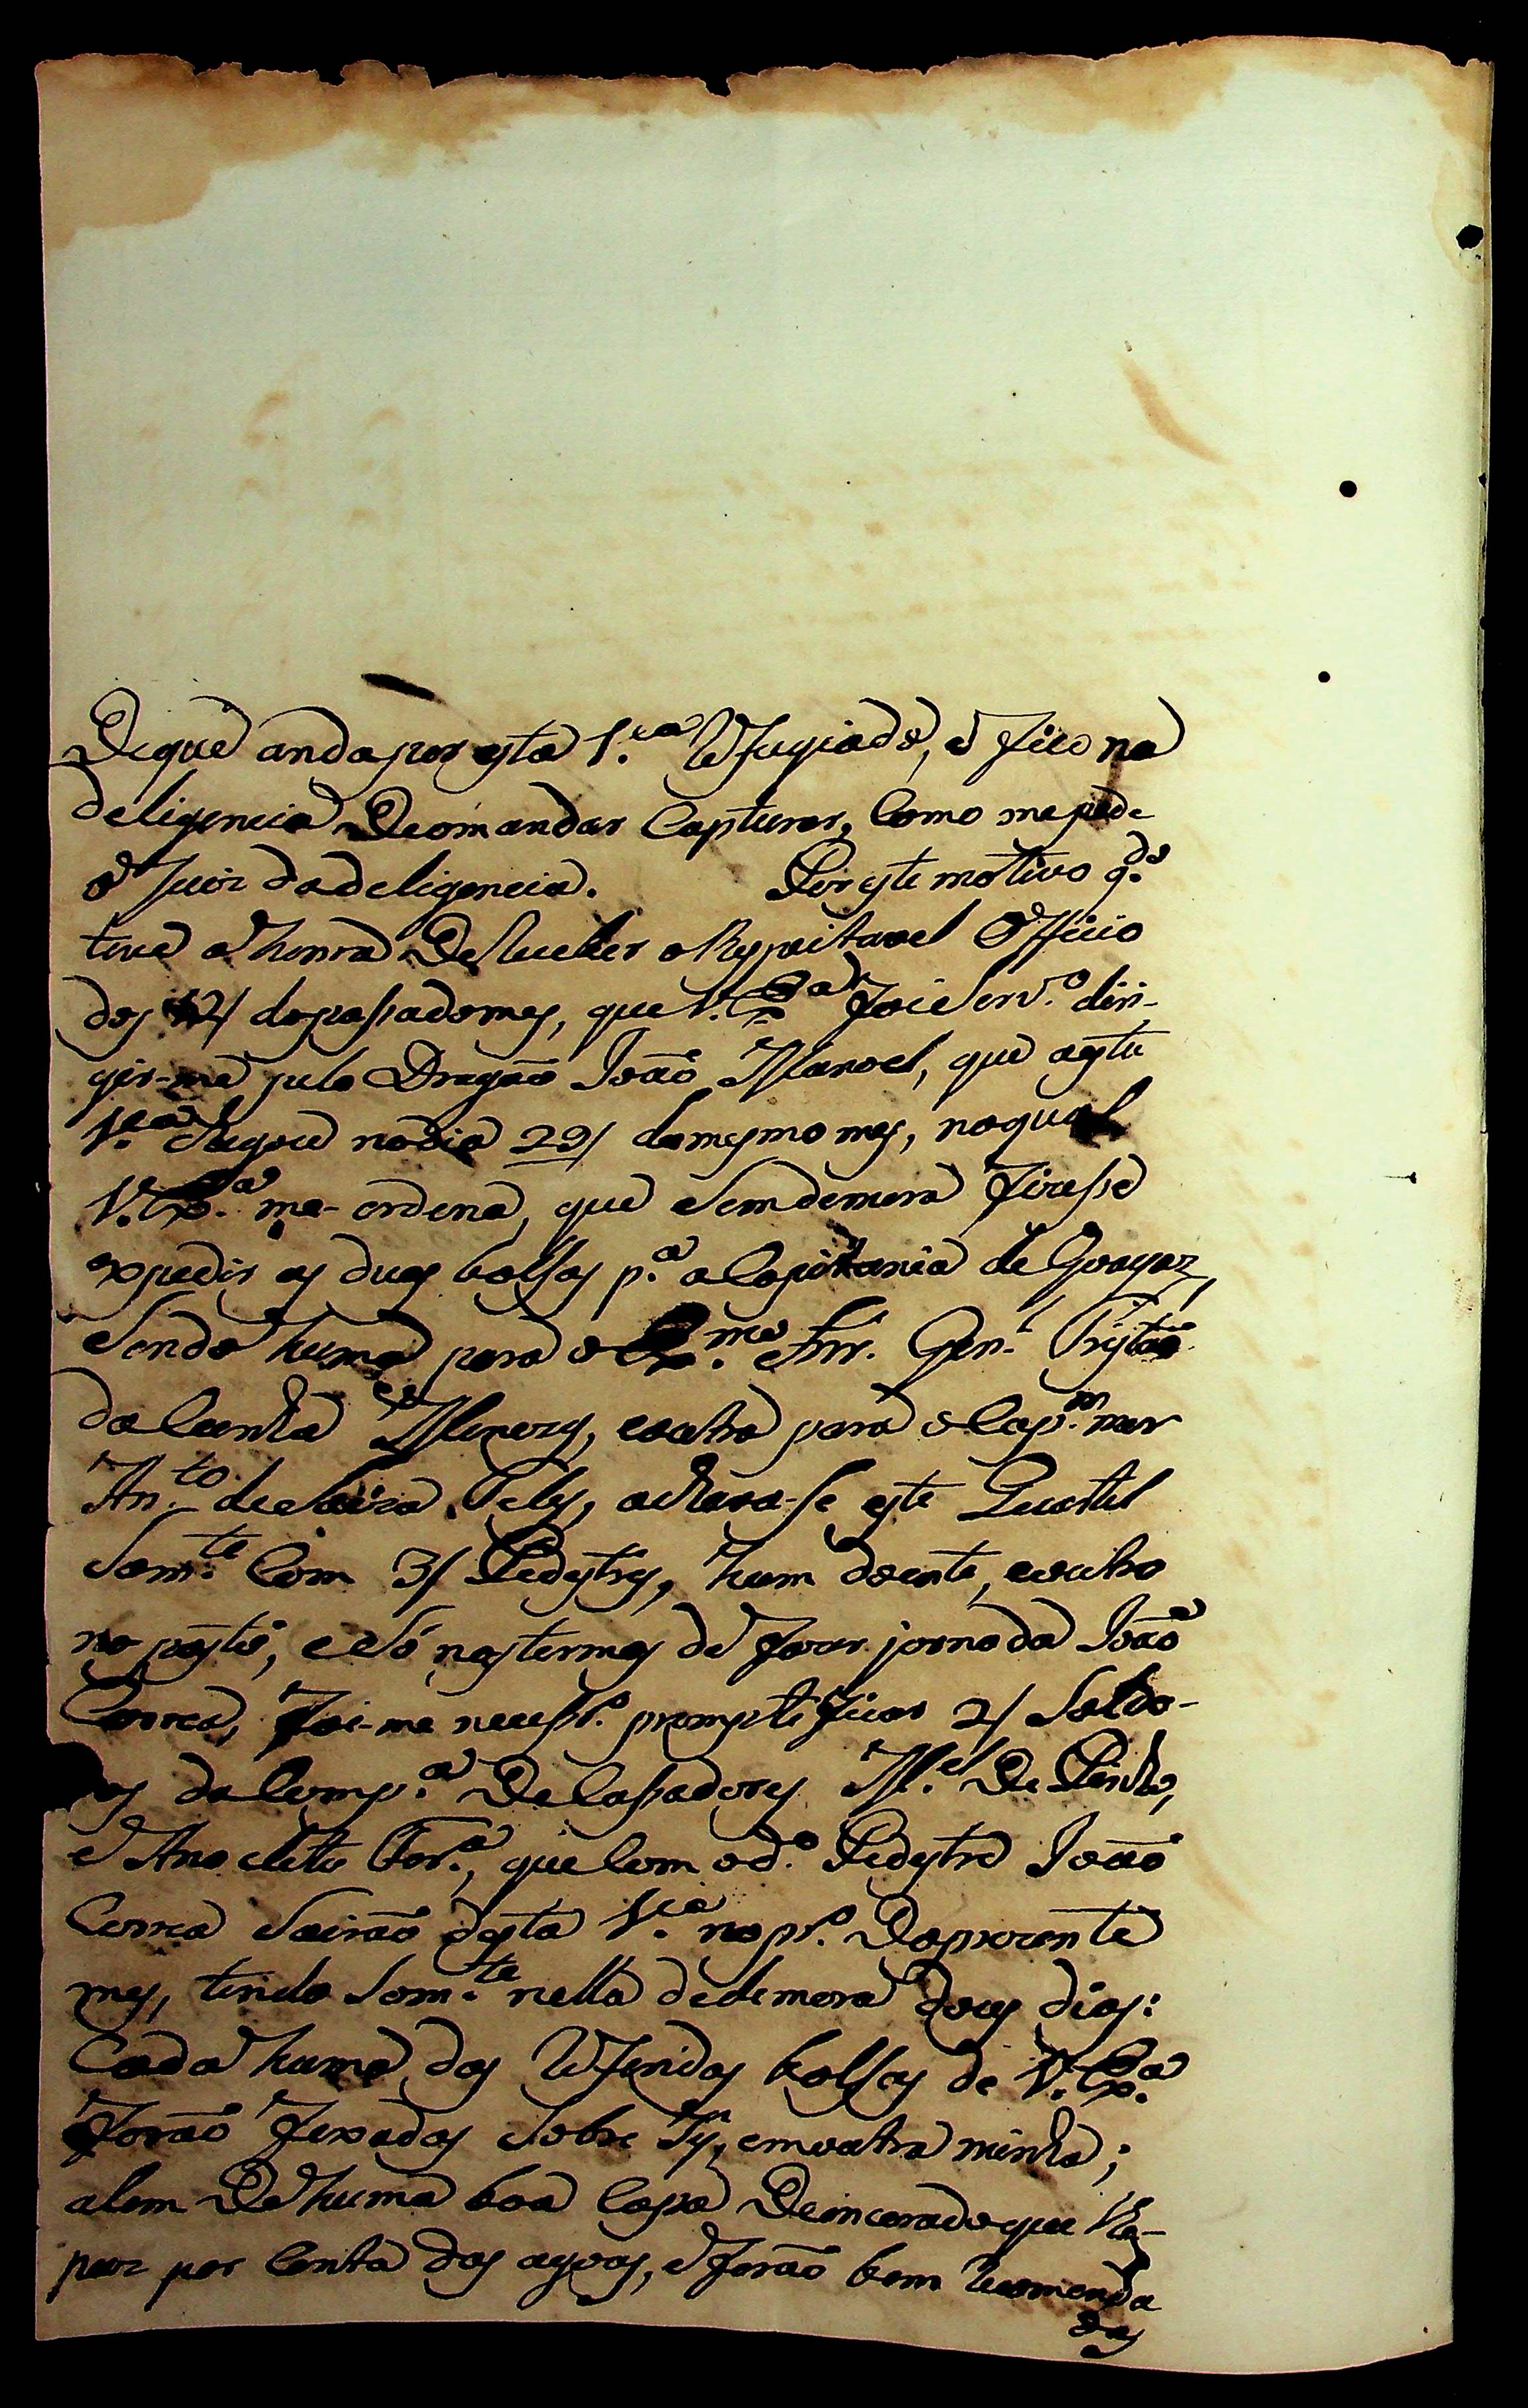 De que anda por esta V.ca Refugiado, e fico na
deligencia de o mandar Capturar, Como me pede
o Juiz da deligencia. Por este motivo q.do
tive a honra de Receber o Respeitavel Officio
dos 12/ do passado mes, que V. Ex.a foi Serv.o diri-
gir-me pelo Dragaõ Joaõ Manoel, que a esta
V.ca Chegou no dia 29/ do mesmo mes, no qual
V. Ex.a me-ordena, que Sem demora fizesse
expedir as duas bolsas p.a a Capitania de Goayaz,
Sendo huma para o Ex.mo Snr. Gen.l Tristaõ
da Cunha e Menezes, e outra para o Cap.m mor
An.to de Souza Teles, achava-se este Quartel
Som.te Com 3/ Pedestres, hum doente, e outro
no posto, e Só nos termos de fazer jornada Joaõ
Correa, foi-me necessr.o promptificar 2/ Solda-
os da Comp.a de Cassadores M.el de Pinho,
e Anacleto Ferr.a, que Com o d.o Pedestre Joaõ
Correa Sairaõ desta V.ca no pr.o do prezente
mes, tendo Som.te nella de demora dous dias:
Cada huma das Referidas bolsas de V. Ex.a
foraõ fexadas Sobre Sy, em outra minha;
alem de huma boa Capa de incerado que lhe-
puz por Conta das agoas, e foraõ bem Recomenda
das